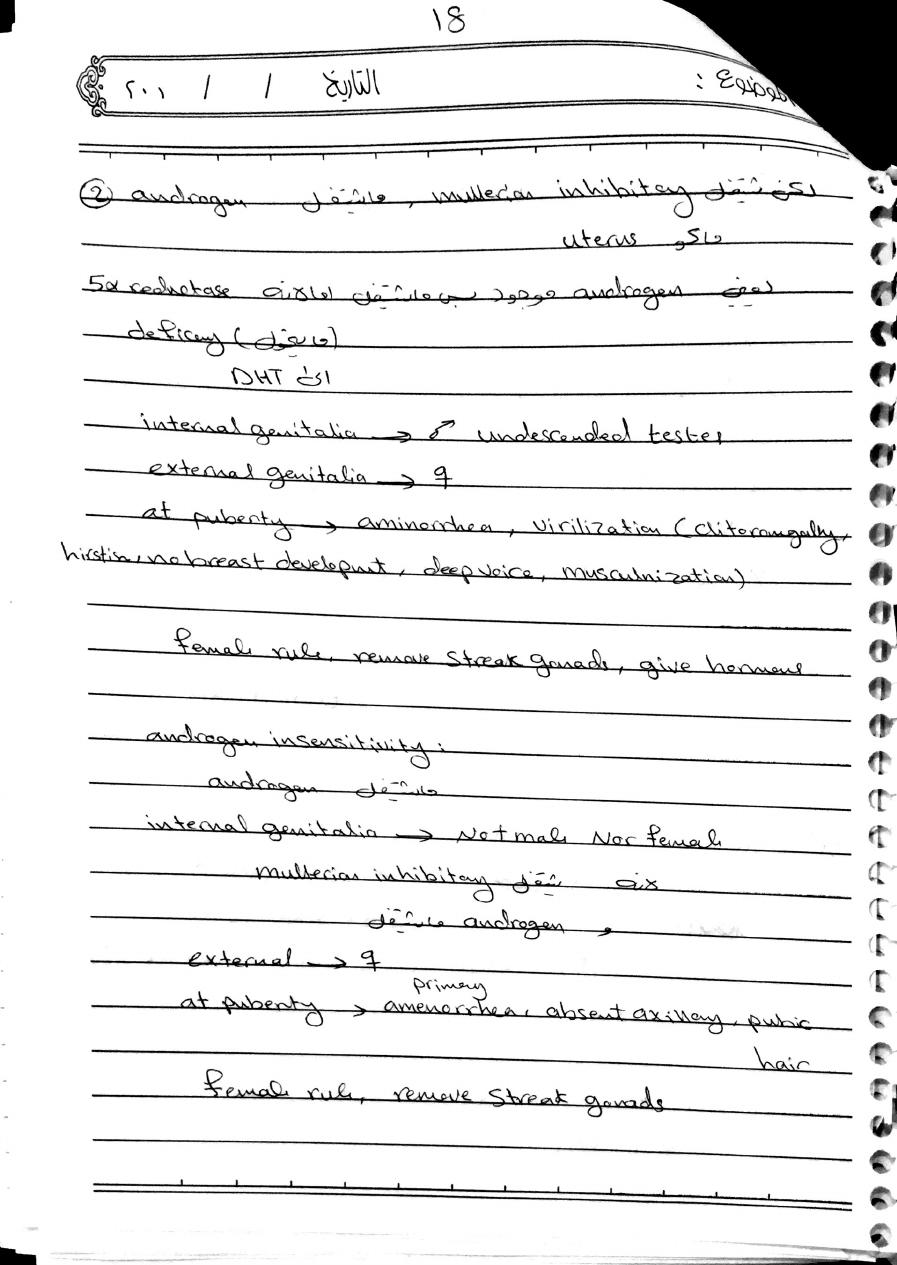 18
الموضوع : التاريخ / / ٢٠١
② androgen ماشتغل , mullerian inhibitary لكن شتغل
ماكو uterus
androgen موجود بس ماشتغل اما لأنه 5α reductase
deficey (مايحول)
الى DHT
internal genitalia → ♂ undescended testes
external genitalia → ♀
at puberty → aminorrhea, virilization (clitoromgally,
hirstism, no breast developmt, deep voice, musculnization)
female rule, remove streak gonads, give hormons
androgen insensitivity :
androgen ماشتغل
internal genitalia → Not male Nor female
لأنه شتغل mullerian inhibitay
و androgen ماشتغل
external → ♀
primary
at puberty → amenorrhea, absent axillary, pubic
hair
female rule, remove streak gonads